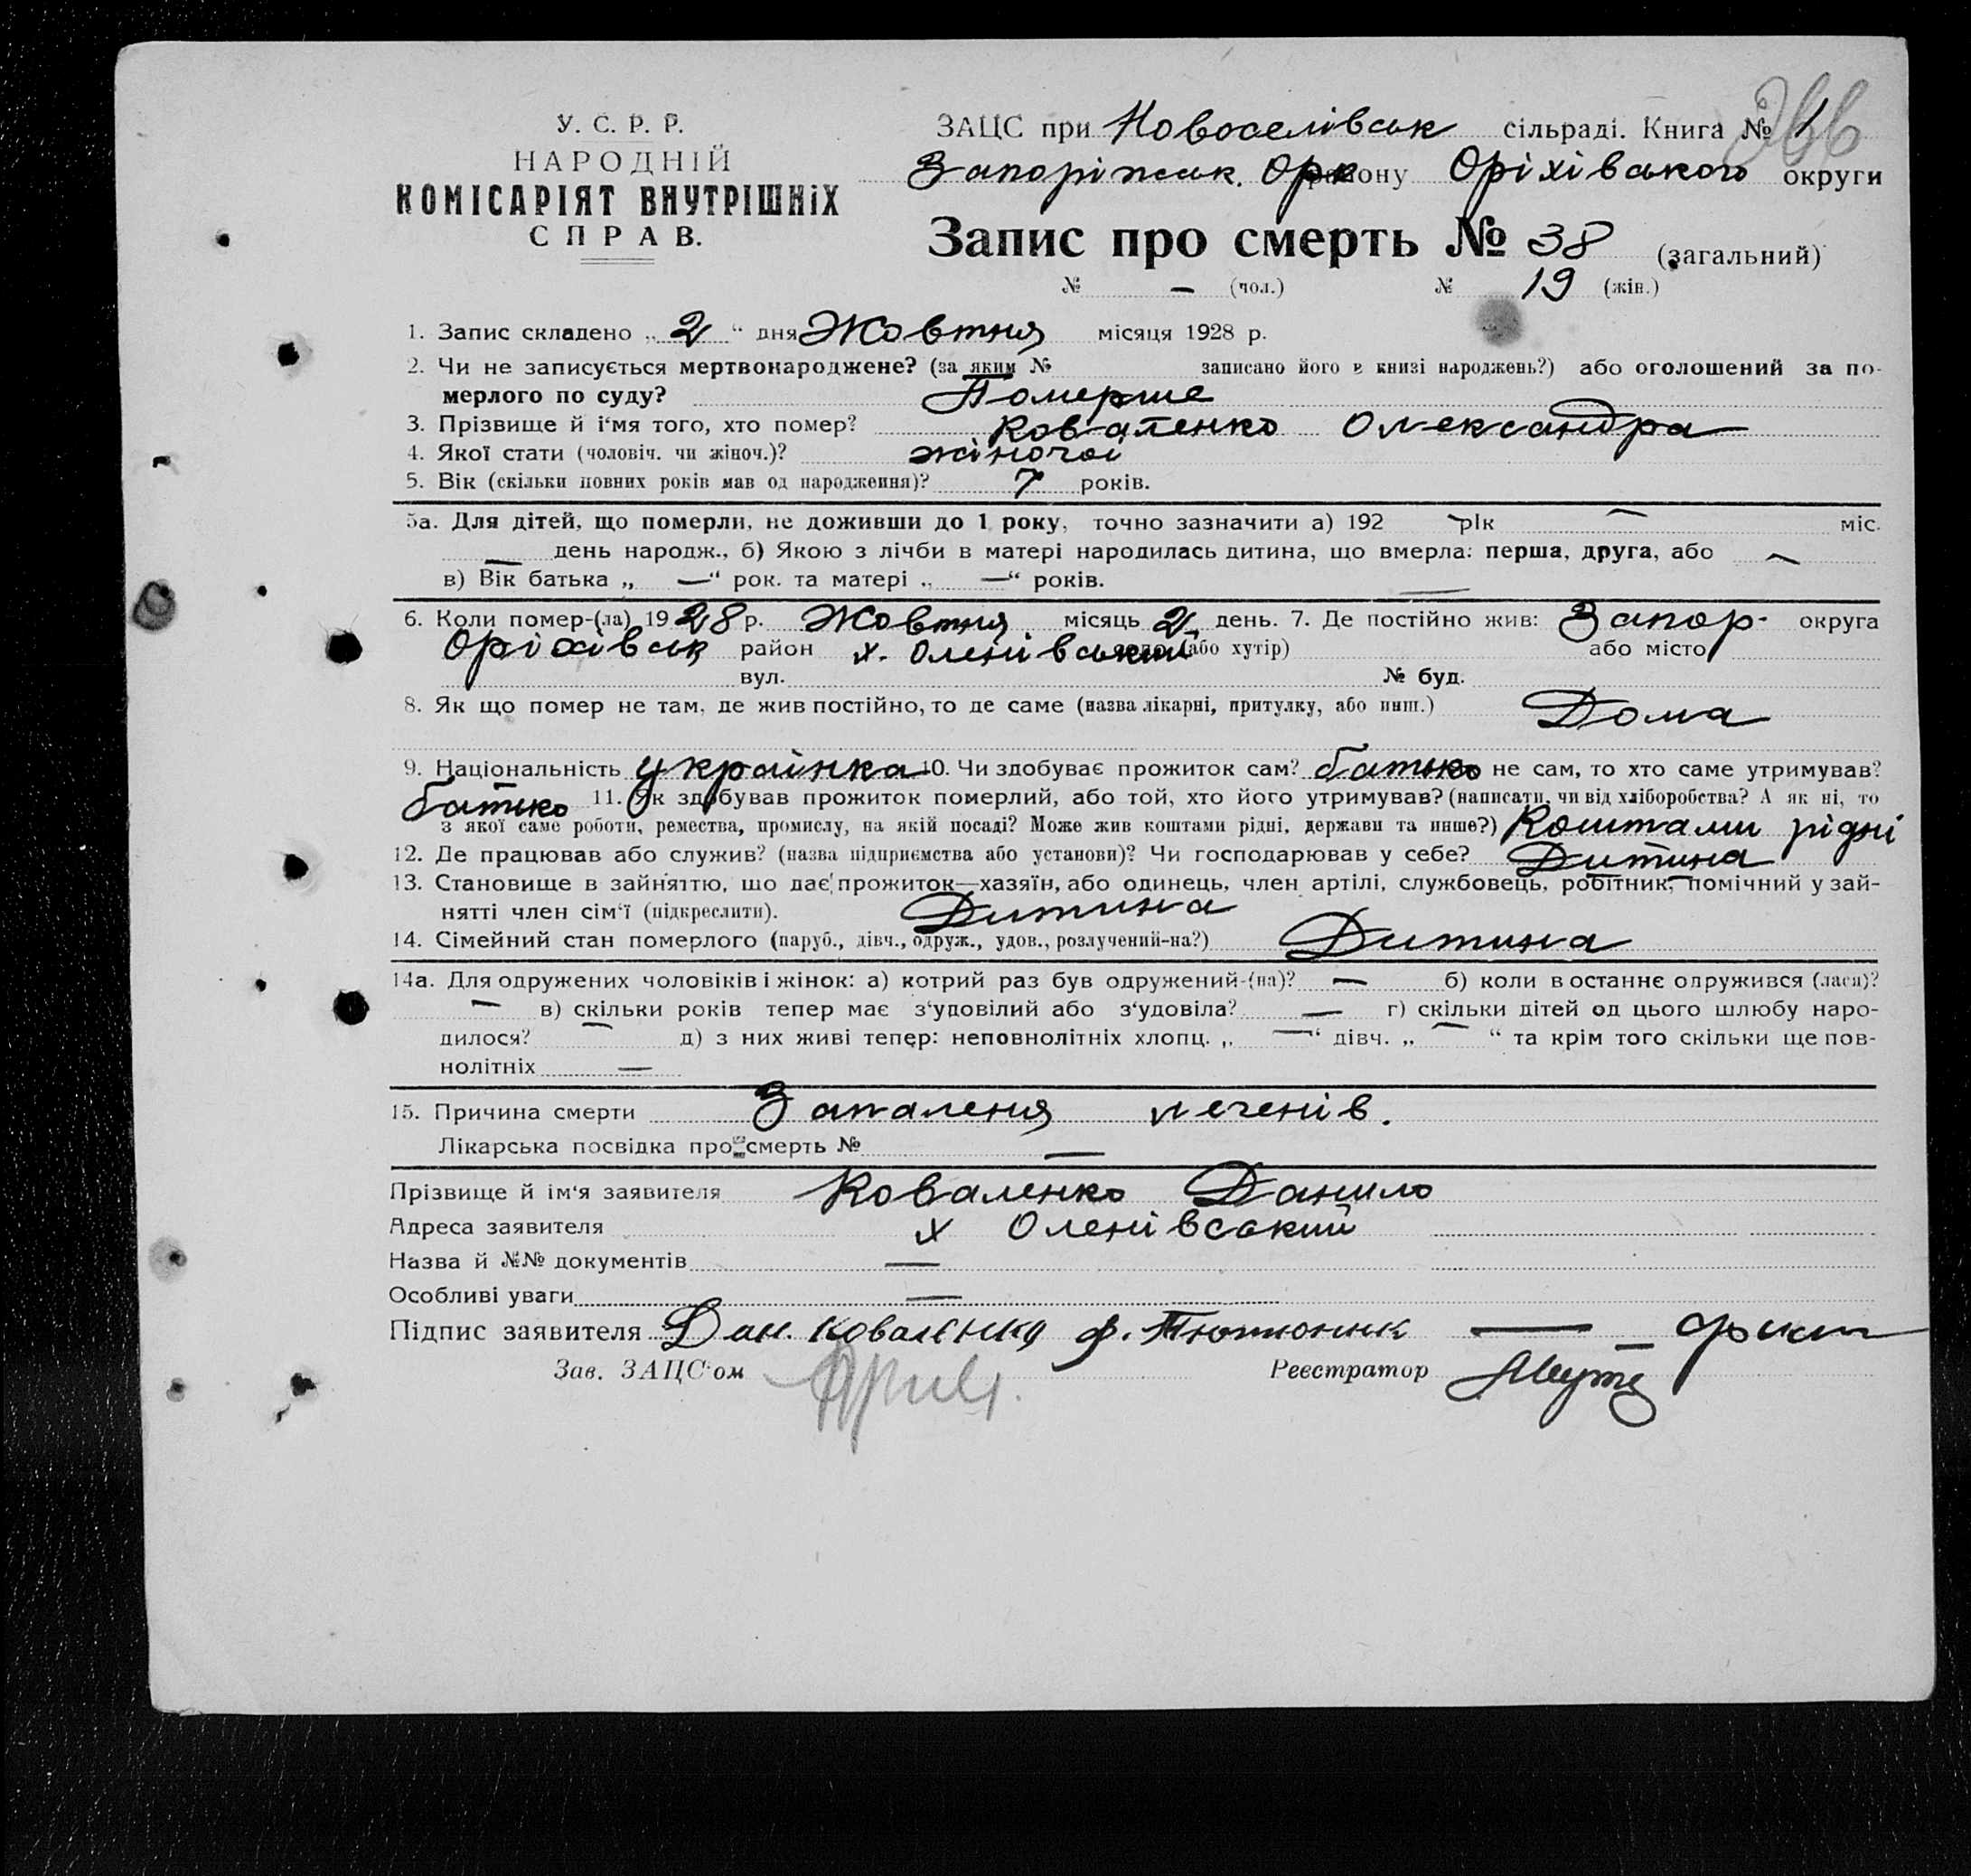 У. С. Р. Р.
НАРОДНІЙ
КОМІСАРІЯТ ВНУТРІШНіХ
СПРАВ.
ЗАЦС при Новоселівськ сільраді. Книга № 1
Запоріжськ. Орк району Оріхівського округи
Запис про смерть № 38 (загальний)
№ — (чол.) № 19 (жін.)
1. Запис складено „ 2 “ дня Жовтня місяця 1928 р.
2. Чи не записується мертвонароджене? (за яким № записано його в книзі народжень?) або оголошений за по-
мерлого по суду? Померше
3. Прізвище й і‘мя того, хто помер? Коваленко Олександра
4. Якої стати (чоловіч. чи жіноч.)? жіночої
5. Вік (скільки повних років мав од народження)? 7 років.
5а. Для дітей, що померли, не доживши до 1 року, точно зазначити а) 192 — рік — міс.
— день народж., б) Якою з лічби в матері народилась дитина, що вмерла: перша, друга, або —
в) Вік батька „ — “ рок. та матері „ — “ років.
6. Коли помер-(ла) 1928 р. Жовтня місяць 2 день. 7. Де постійно жив: Запор. округа
Оріхівськ район х. Оленівський село (або хутір) або місто
вул. № буд.
8. Як що помер не там, де жив постійно, то де саме (назва лікарні, притулку, або инш.) Дома
9. Національність українка 10. Чи здобуває прожиток сам? батько не сам, то хто саме утримував?
батько 11. Як здобував прожиток померлий, або той, хто його утримував? (написати, чи від хліборобства? А як ні, то
з якої саме роботи, ремества, промислу, на якій посаді? Може жив коштами рідні, держави та инше?) Коштами рідні
12. Де працював або служив? (назва підприємства або установи)? Чи господарював у себе? Дитина
13. Становище в зайняттю, що дає прожиток—хазяїн, або одинець, член артілі, службовець, робітник, помічний у зай-
нятті член сім‘ї (підкреслити). Дитина
14. Сімейний стан померлого (паруб., дівч., одруж., удов., розлучений-на?) Дитина
14а. Для одружених чоловіків і жінок: а) котрий раз був одружений-(на)? — б) коли в останнє одружився (лася)?
— в) скільки років тепер має з‘удовілий або з‘удовіла? — г) скільки дітей од цього шлюбу наро-
дилося? — д) з них живі тепер: неповнолітніх хлопц. „ — “ дівч. „ — “ та крім того скільки ще пов-
нолітніх —
15. Причина смерти Запаленя печенів.
Лікарська посвідка про смерть № —
Прізвище й ім‘я заявителя Коваленко Данило
Адреса заявителя х Оленівський
Назва й №№ документів —
Особливі уваги —
Підпис заявителя Дан. Коваленко ф. Тютюник —
Зав. ЗАЦС‘ом Реєстратор